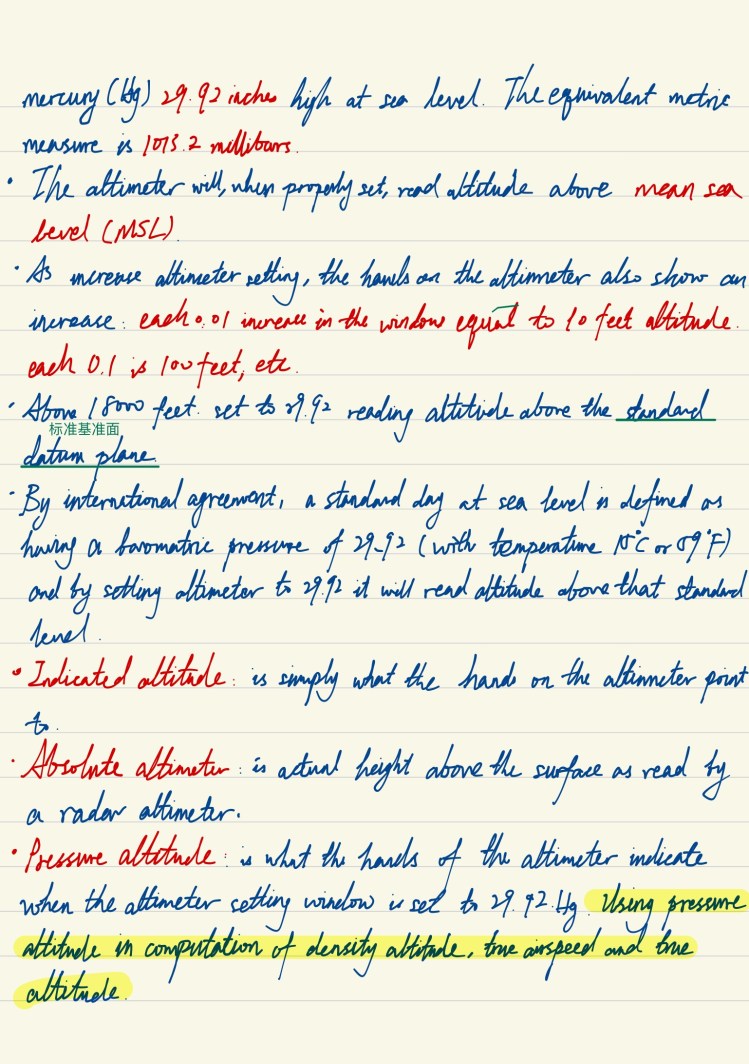 mercury (Hg) 29.92 inches high at sea level. The equivalent metric
measure is 1013.2 millibars.
· The altimeter will, when properly set, read altitude above mean sea
level (MSL).
· As increase altimeter setting, the hands on the altimeter also show an
increase: each 0.01 increase in the window equal to 10 feet altitude.
each 0.1 is 100 feet, etc.
· Above 18000 feet. set to 29.92 reading altitude above the standard
标准基准面
datum plane.
· By international agreement, a standard day at sea level is defined as
having a barometric pressure of 29.92 (with temperature 15°C or 59°F)
and by setting altimeter to 29.92 it will read altitude above that standard
level.
· Indicated altitude: is simply what the hands on the altimeter point
to.
· Absolute altimeter: is actual height above the surface as read by
a radar altimeter.
· Pressure altitude: is what the hands of the altimeter indicate
when the altimeter setting window is set to 29.92.Hg. Using pressure
altitude in computation of density altitude, true airspeed and true
altitude.